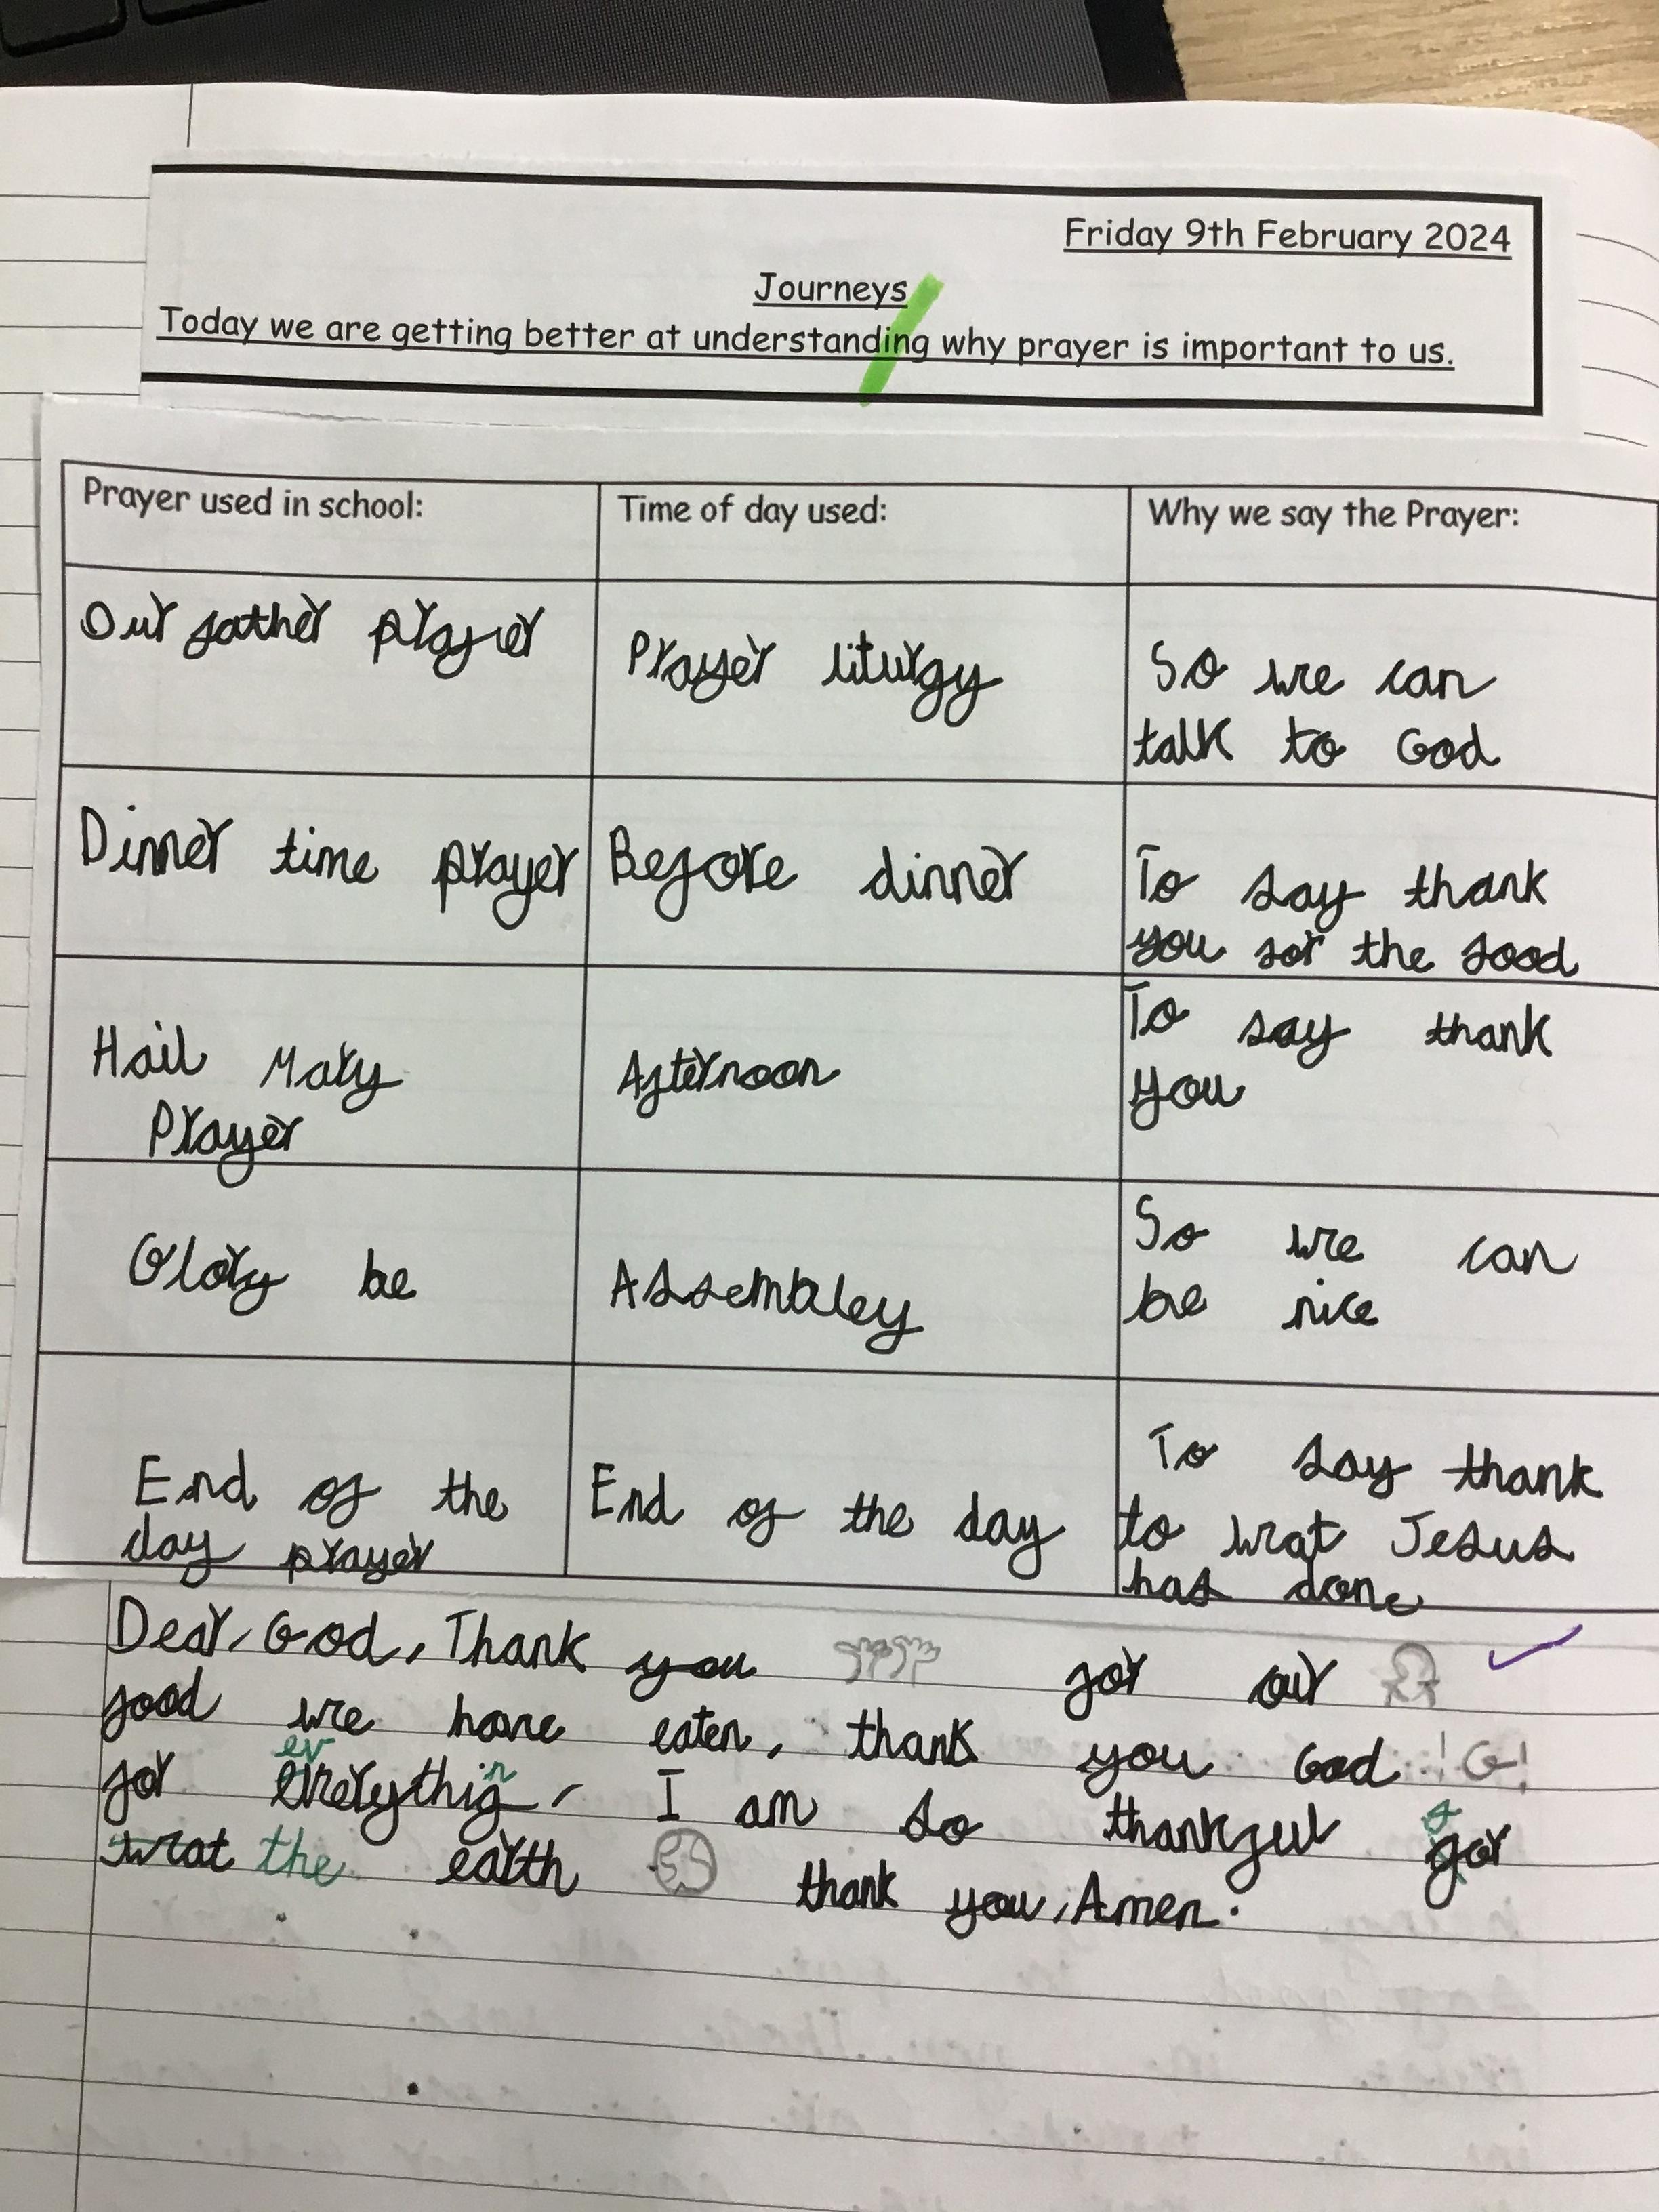 Friday 9th February 2024
Journeys
Today we are getting better at understanding why prayer is important to us.
Prayer used in school:
Time of day used:
Why we say the Prayer:
Our father prayer
Prayer liturgy
So we can
talk to God
Dinner time prayer
Before dinner
To say thank
you for the food
Hail Mary
Prayer
Afternoon
To say thank
you
Glory be
Assembley
So we can
be nice
End of the
day prayer
End of the day
To say thank
to wrat Jesus
has done
Dear, God, Thank you for our
food we have eaten, thank you God G!
for everything, I am so thankful for
wrat the earth thank you, Amen.